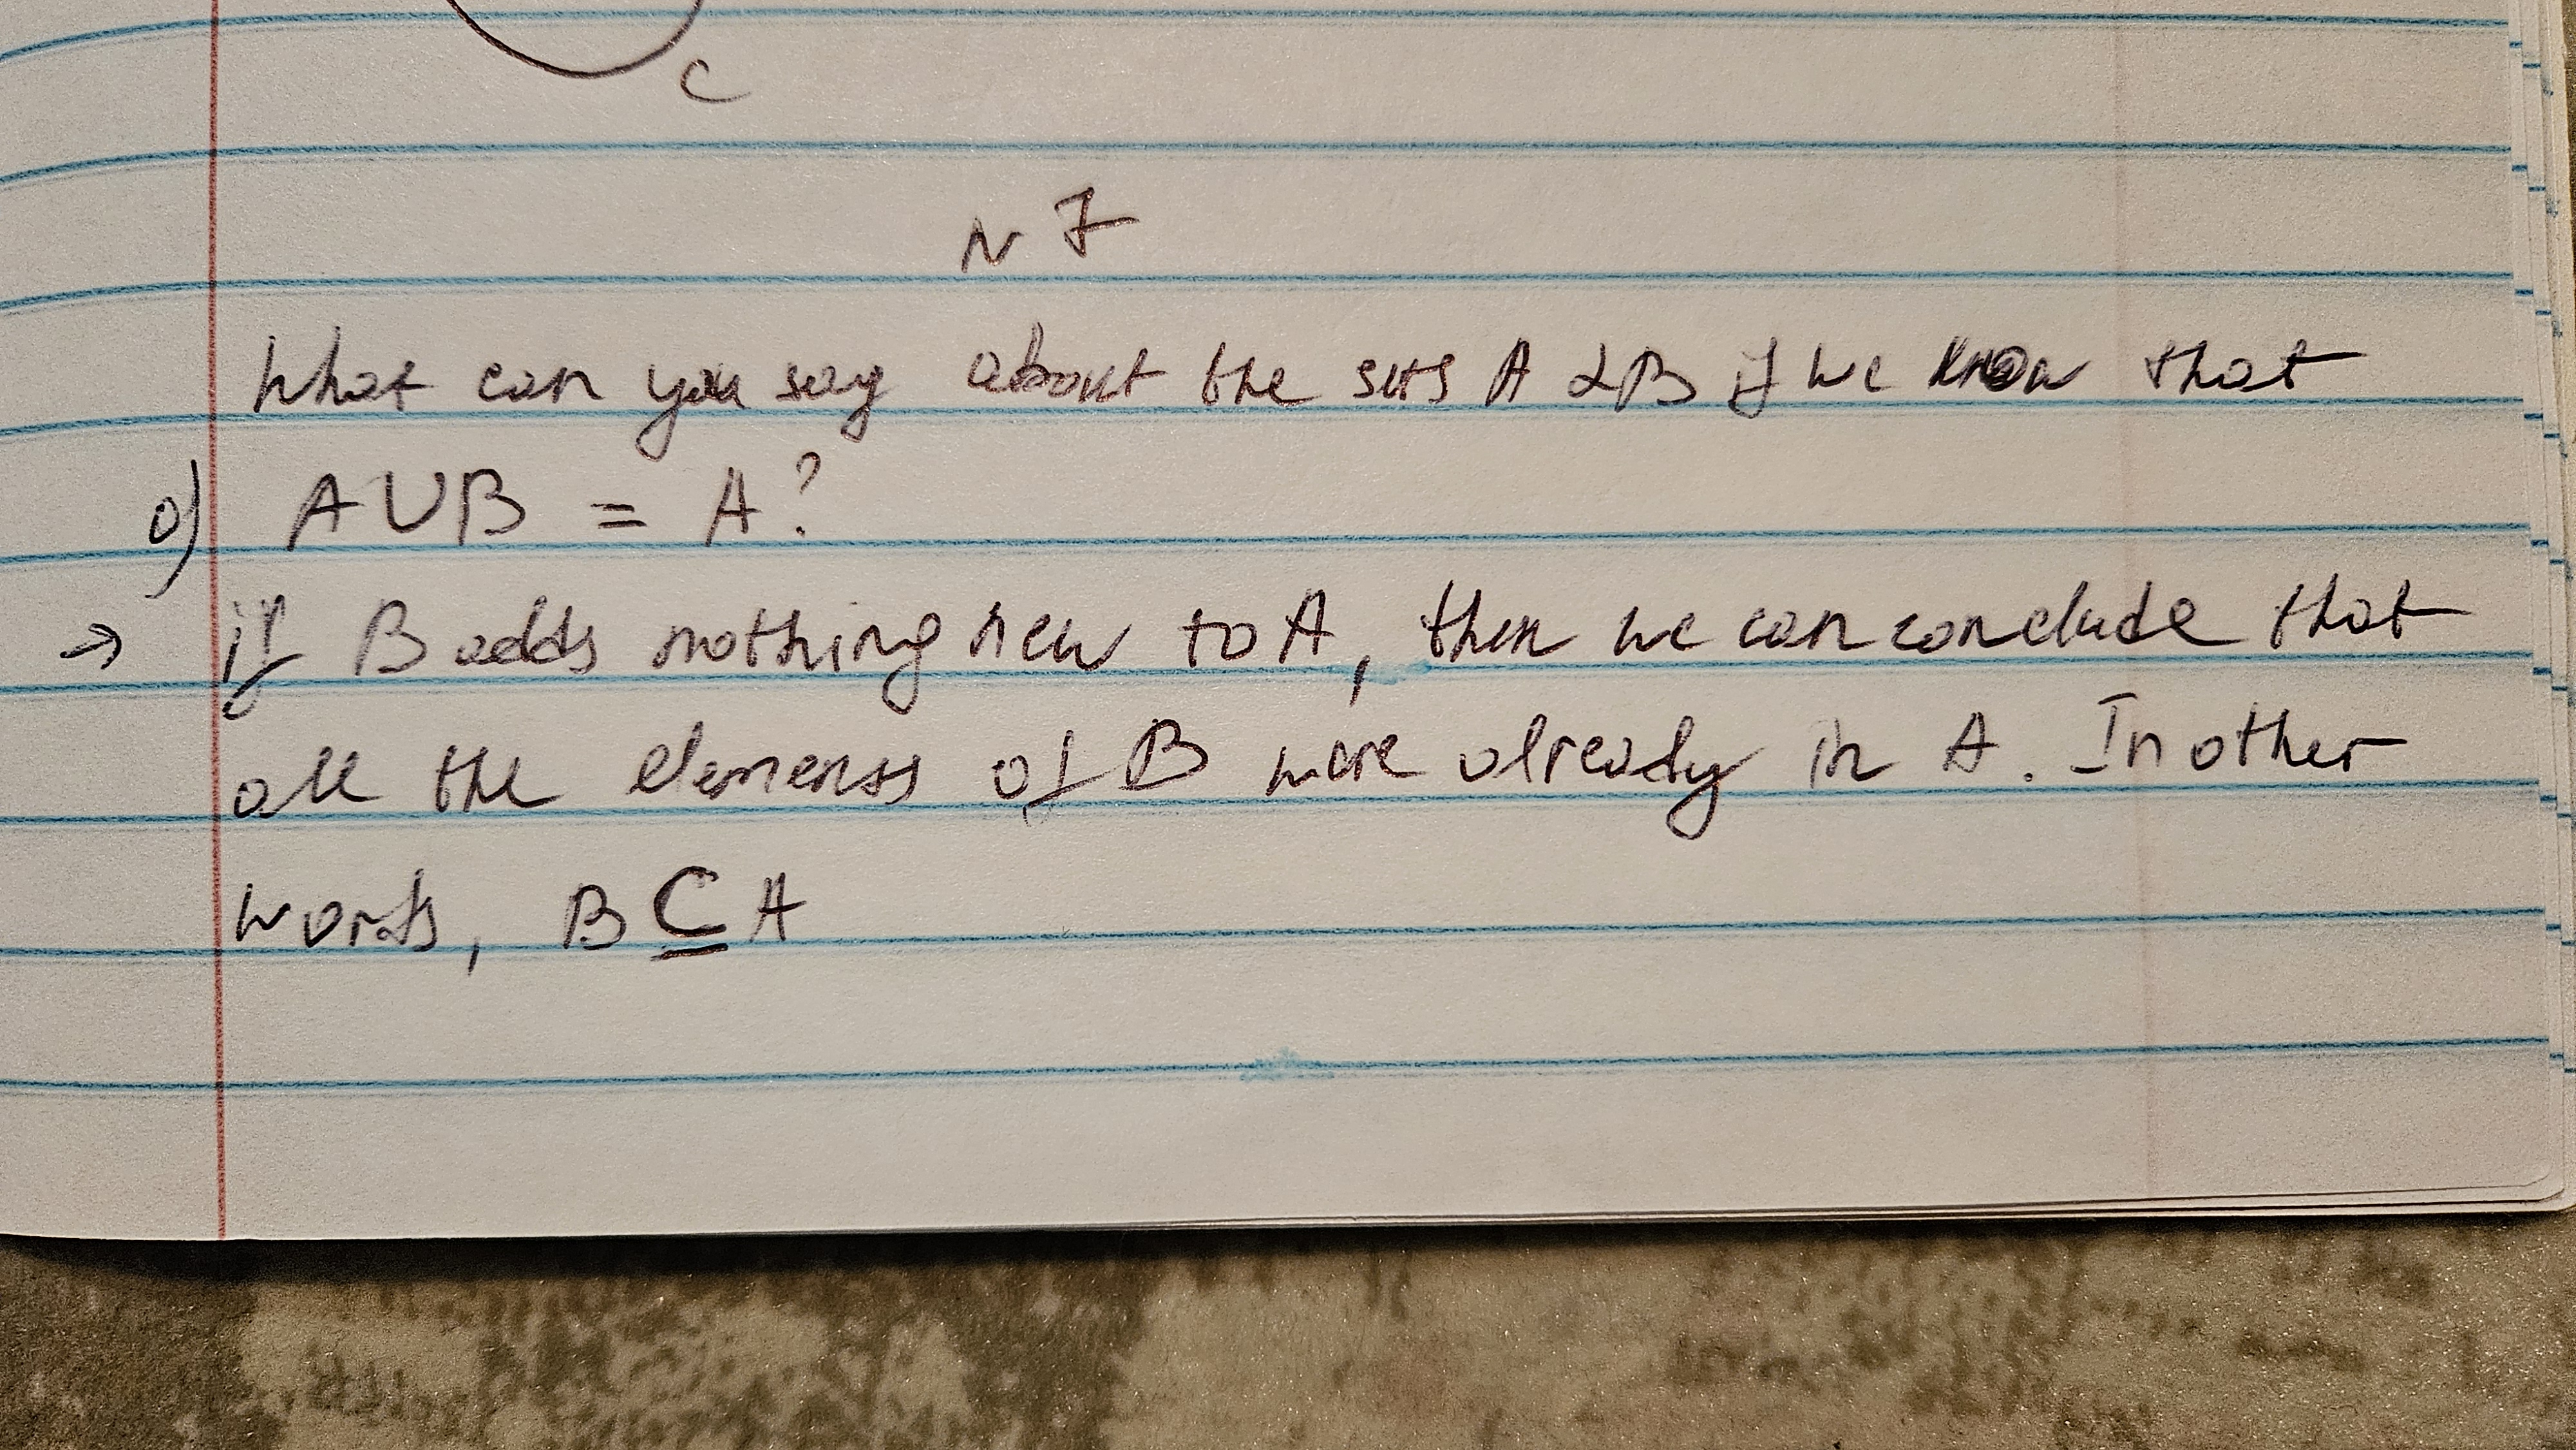 C
N I
What can you say about the sets A & B if we know that
a) A∪B = A?
→ if B adds nothing new to A, then we can conclude that
all the elements of B were already in A. In other
words, B ⊆ A